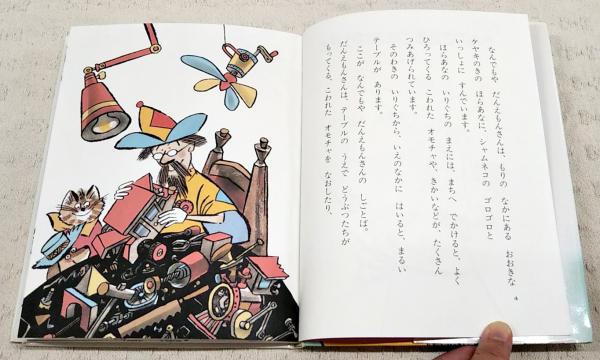 なんでもや だんえもんさんは、もりの なかにある おおきな
ケヤキのきの ほらあなに、シャムネコの ゴロゴロと
いっしょに すんでいます。
ほらあなの いりぐちの まえには、まちへ でかけると、よく
ひろってくる こわれた オモチャや、きかいなどが、たくさん
つみあげられています。
そのわきの いりぐちから、いえのなかに はいると、まるい
テーブルが あります。
ここが なんでもや だんえもんさんの しごとば。
だんえもんさんは、テーブルの うえで どうぶつたちが
もってくる、こわれた オモチャを なおしたり、
4